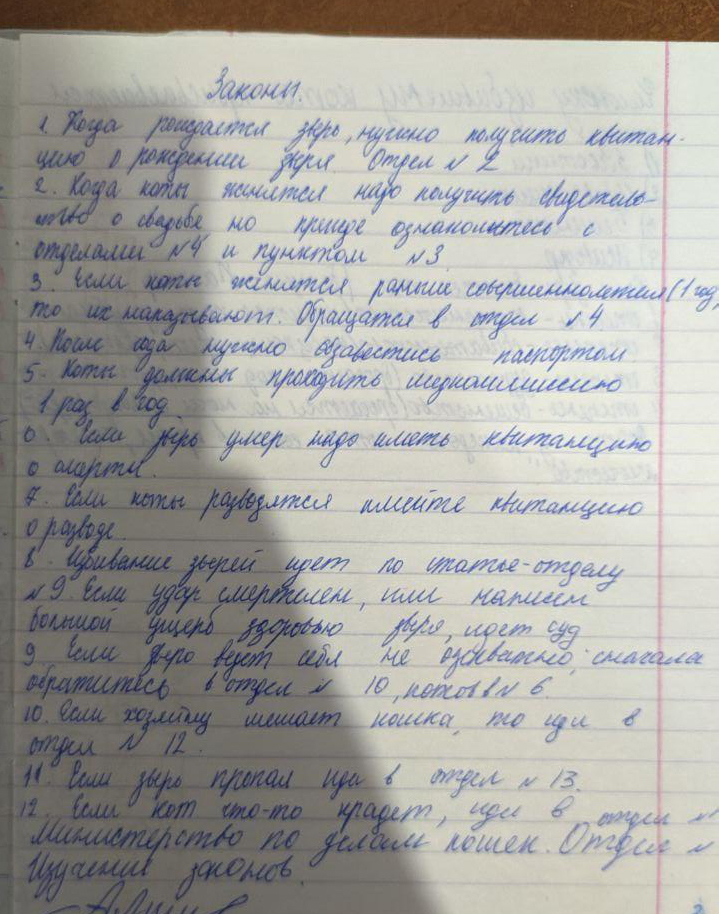 Законы.
1. Когда рождается зверь, нужно получить квитан-
цию о рождении зверя Отдел № 2
2. Когда коты женятся надо получить свидетель-
тво о свадьбе но прежде ознакомьтесь с
отделами № 4 и пунктом № 3
3. Если коты женятся раньше совершеннолетия (1 год)
то их наказывают. Обращатся в отдел № 4
4. После года нужно обзавестись паспортом
5. Коты должны проходить медкоммиссию
1 раз в год
6 Если зверь умер надо иметь квитанцию
о смерти.
7. Если коты разводятся имейте квитанцию
о разводе.
8. Избивание зверей идет по статье-отделу
№ 9. Если удар смертелен, или нанесен
большой ущерб здоровью зверя, идет суд
9 Если зверь ведет себя не адекватно, сначала
обратитесь в отдел № 10, потом в № 6.
10. Если хозяину мешает кошка, то иди в
отдел № 12.
11. Если зверь пропал иди в отдел № 13.
12. Если кот что-то крадет, иди в отдел №
Министерство по делам кошек. Отдел №
Изучения законов